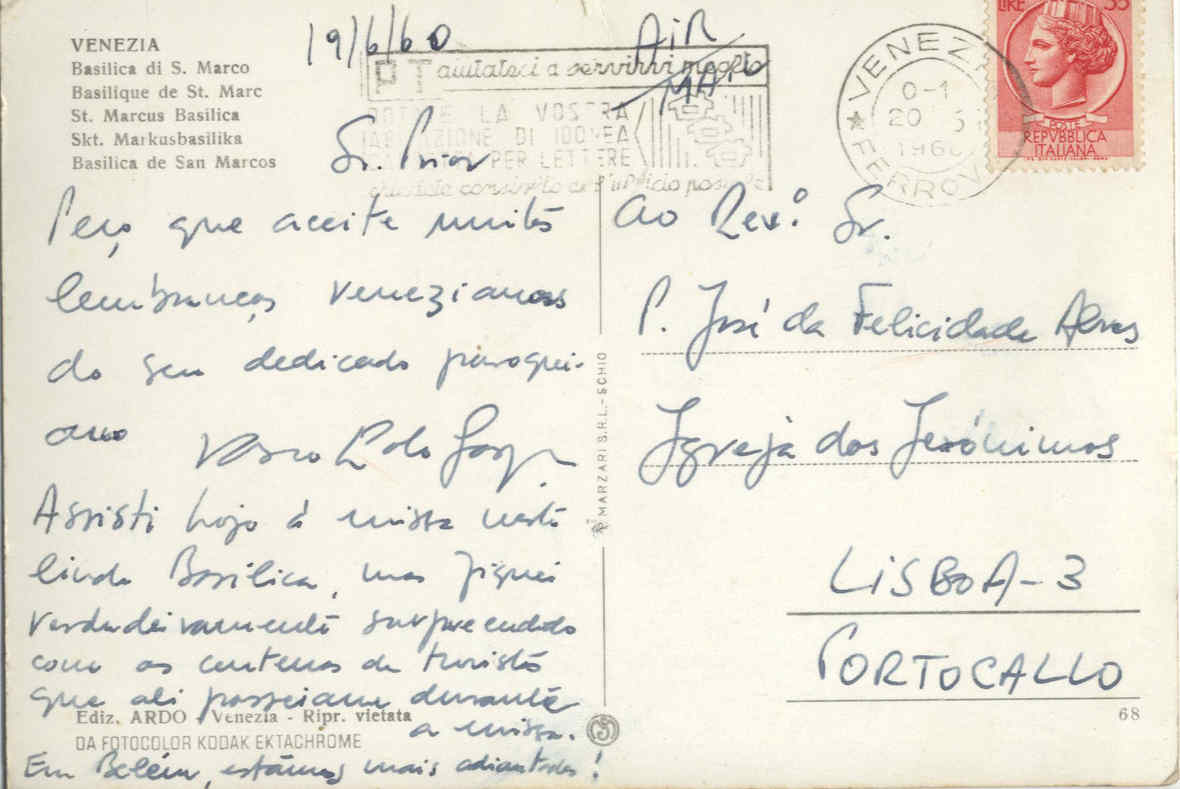 VENEZIA
Basilica di S. Marco
Basilique de St. Marc
St. Marcus Basilica
Skt. Markusbasilika
Basilica de San Marcos
19/6/60
AIR
MAIL
PT aiutateci a servirvi meglio
LA VOSTRA
DI IDONEA
PER LETTERE
LIRE 35
POSTE
REPVBBLICA
ITALIANA
VENEZIA
0-1
20
196
FERROV
Sr. Prior
Peço que aceite muitas
lembranças venezianas
do seu dedicado paroqui-
ano
Vasco
Assisti hoje à missa nesta
linda Basílica, mas fiquei
verdadeiramente surpreendido
com as centenas de turistas
que ali passeiam durante
a missa.
Em Belém, estamos mais adiantados!
Ediz. ARDO Venezia - Ripr. vietata
DA FOTOCOLOR KODAK EKTACHROME
MARZARI S.R.L. - SCHIO
Ao Rev.º Sr.
P. José da Felicidade Alves
Igreja dos Jerónimos
LISBOA-3
PORTOGALLO
68